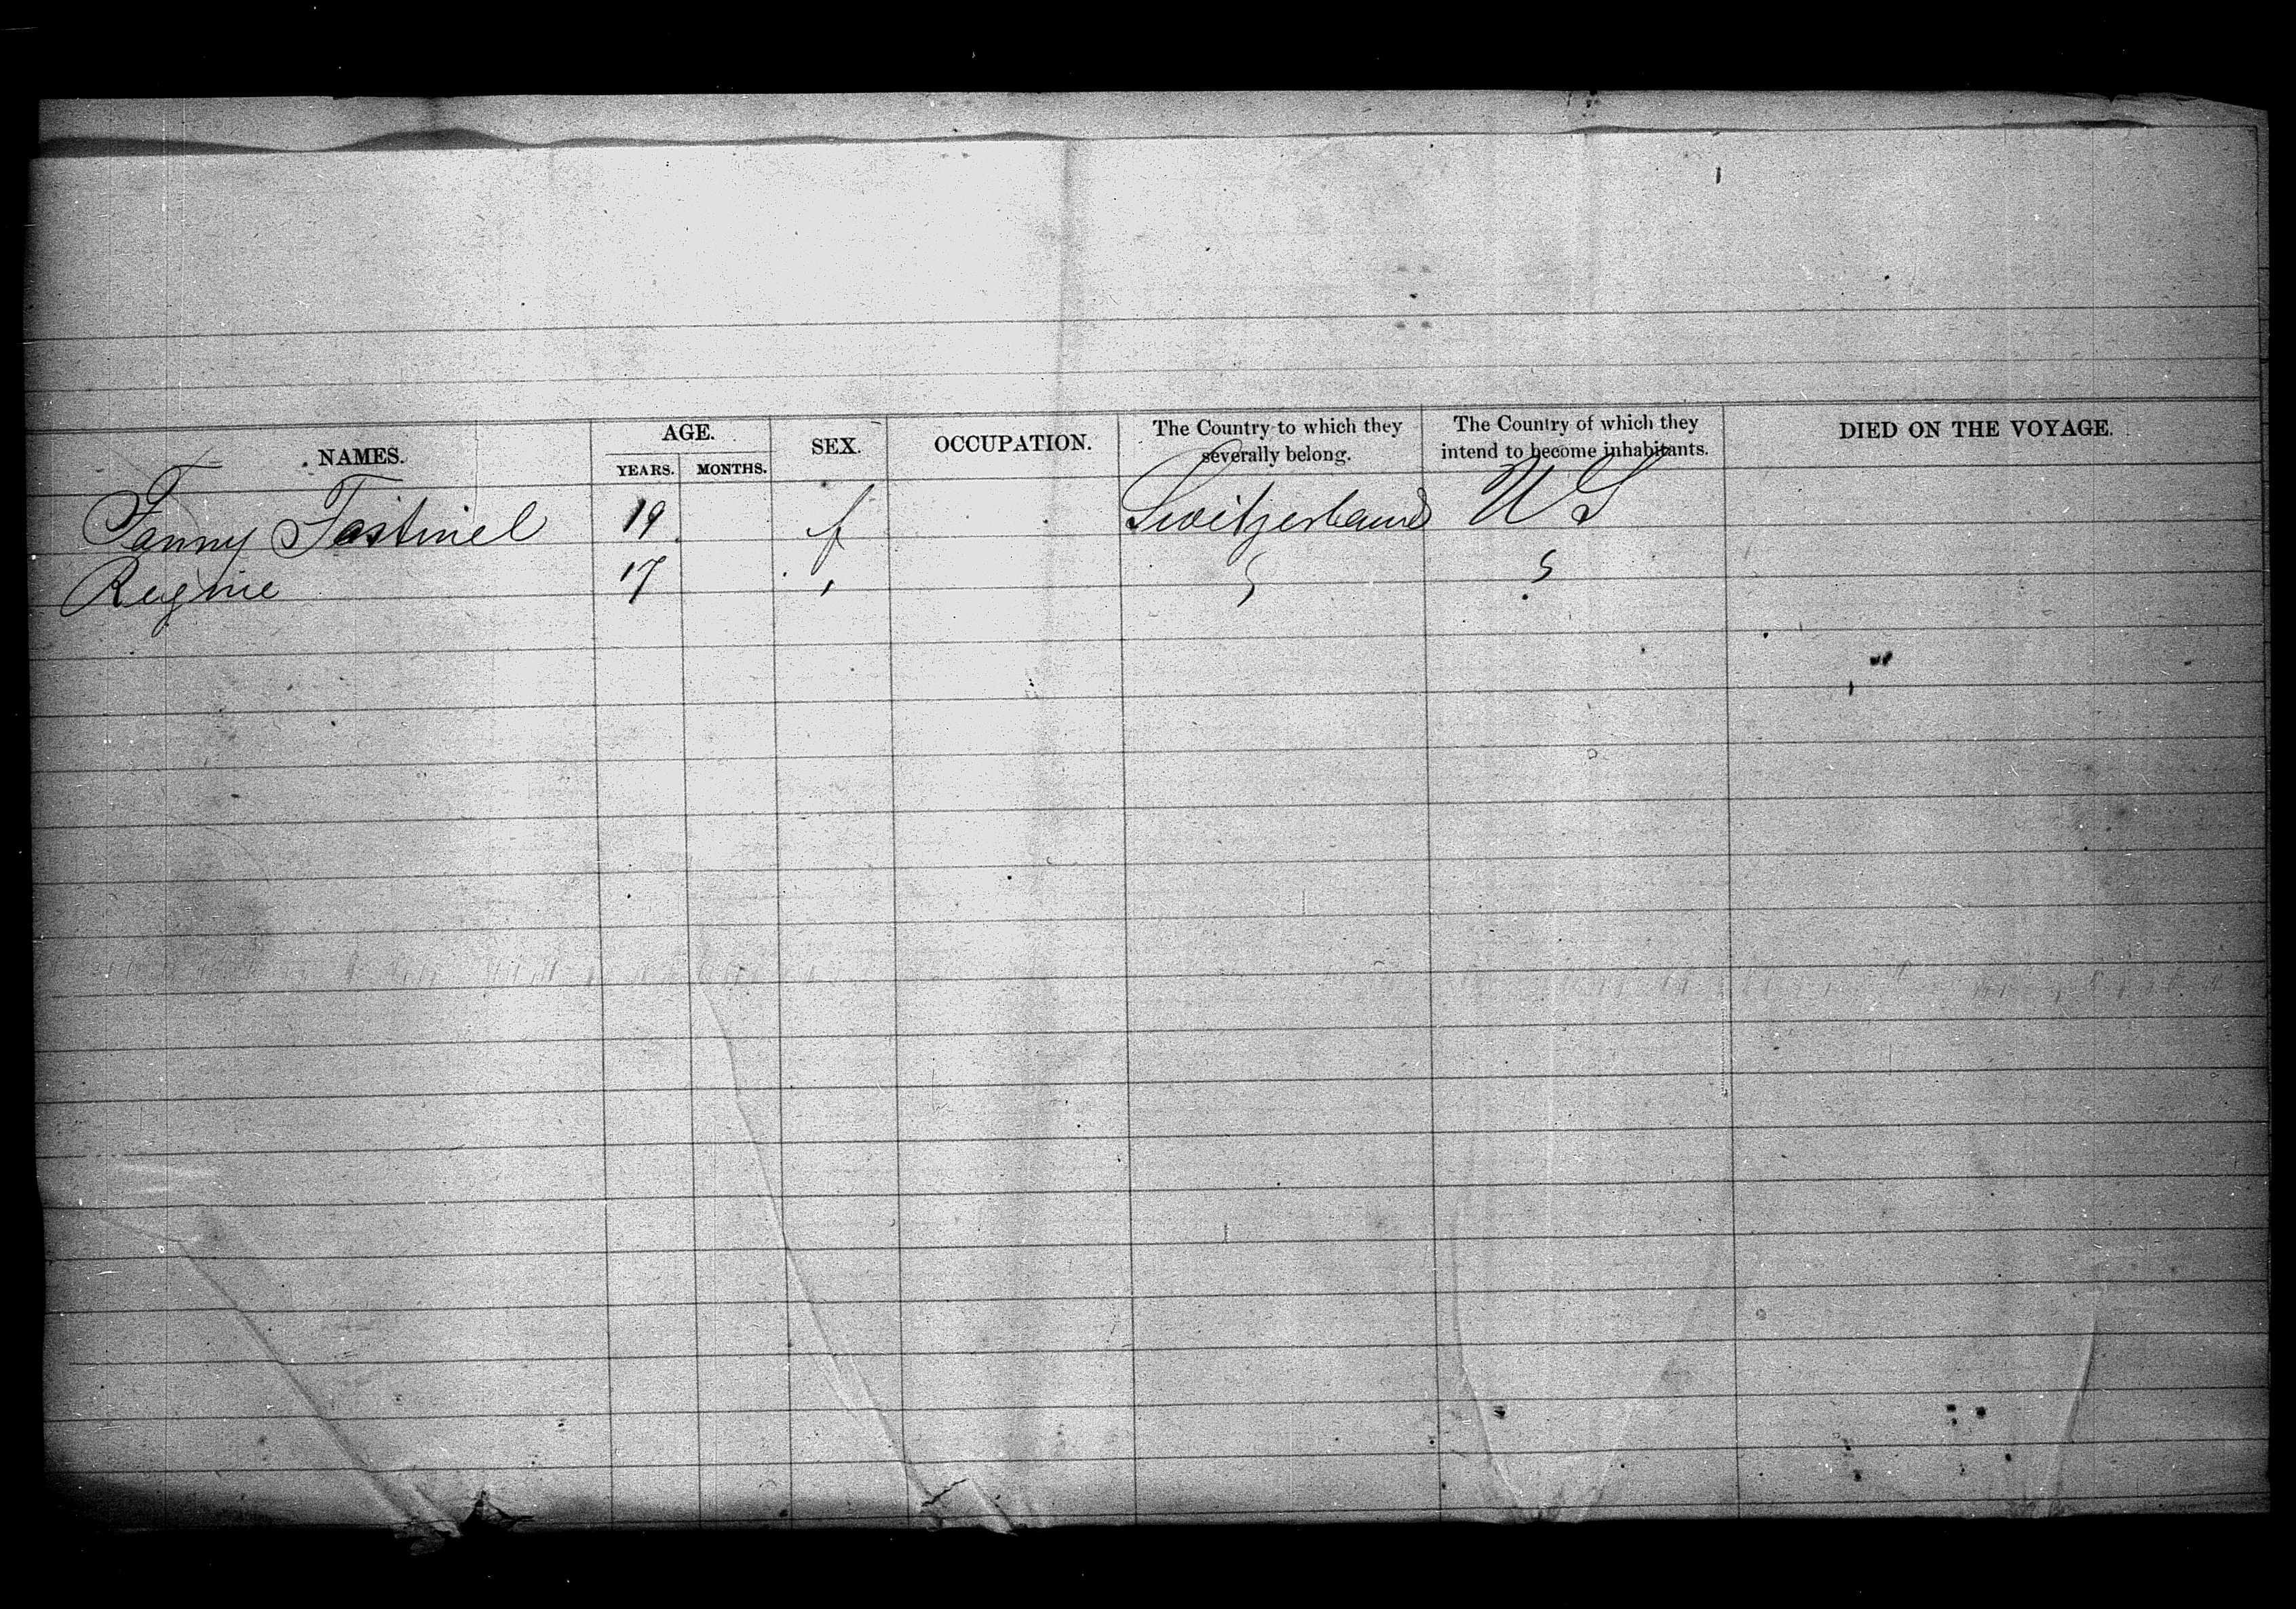 NAMES. AGE. SEX. OCCUPATION. The Country to which they severally belong. The Country of which they intend to become inhabitants. DIED ON THE VOYAGE.
YEARS. MONTHS.
Fanny Tastinel 19 f Switzerland U S
Regine 17 "